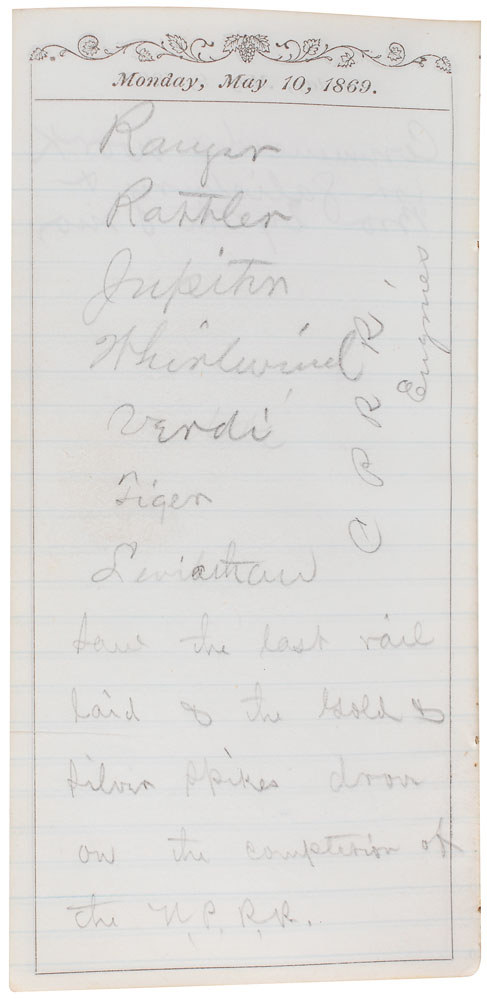 Monday, May 10, 1869.
Ranger
Rattler
Jupiter
Whirlwind
Verdi
Tiger
Leviathan
C P R R
Engines
Saw the last rail
laid & the Gold &
Silver Spikes drove
on the completion of
the U.P.R.R.